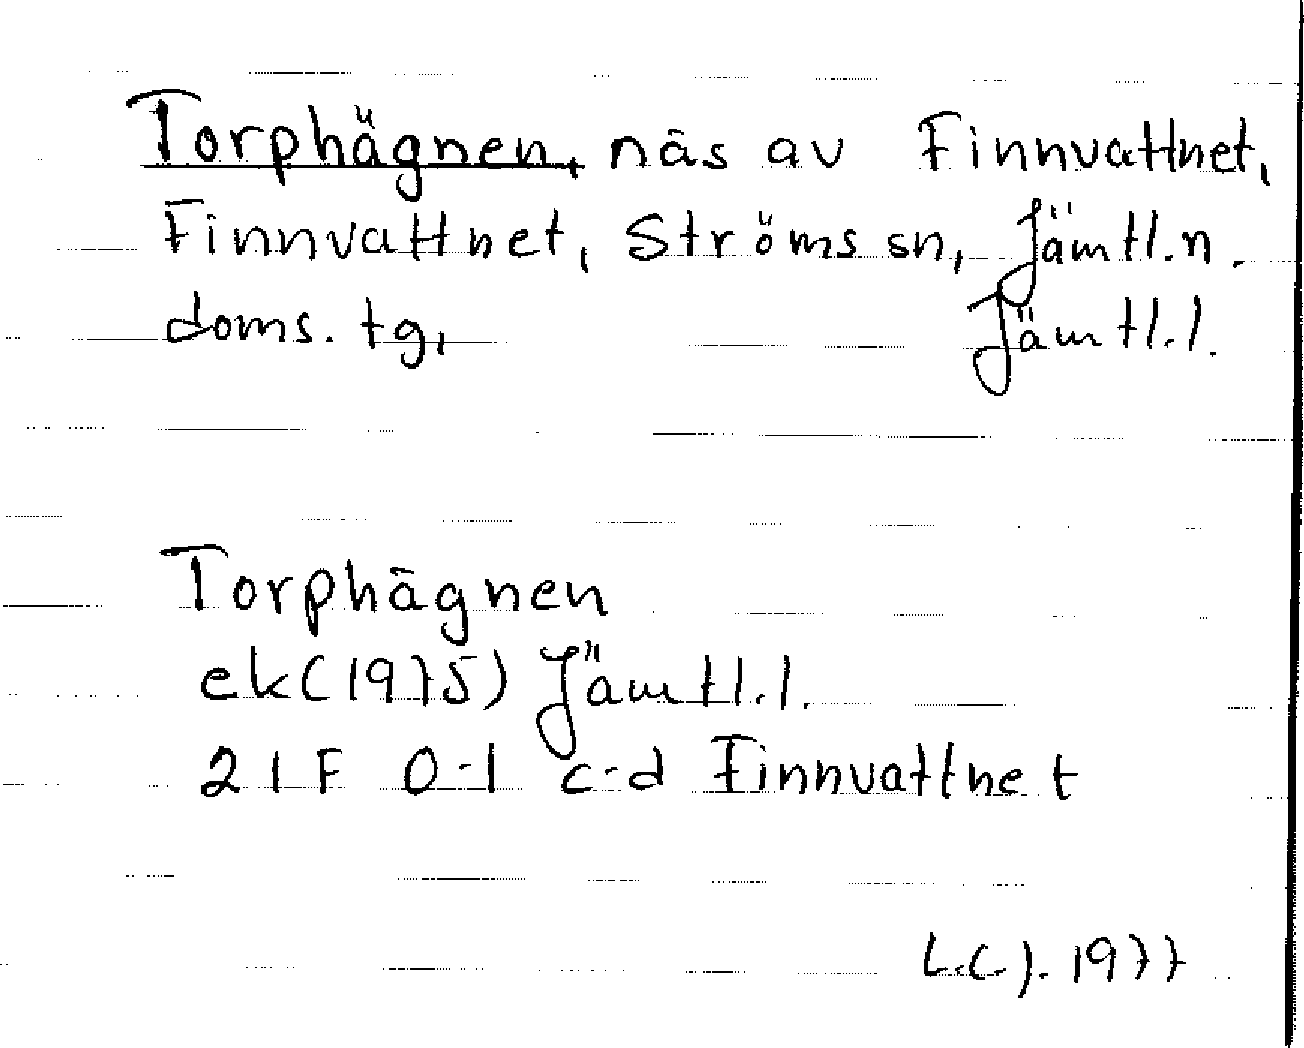 Torphägnen, näs av Finnvattnet,
Finnvattnet, Ströms sn, Jämtl.n.
doms. tg, Jämtl.l.
Torphägnen
ek(1975) Jämtl.l.
21F 0-1 c-d Finnvattnet
L.C.J. 1977